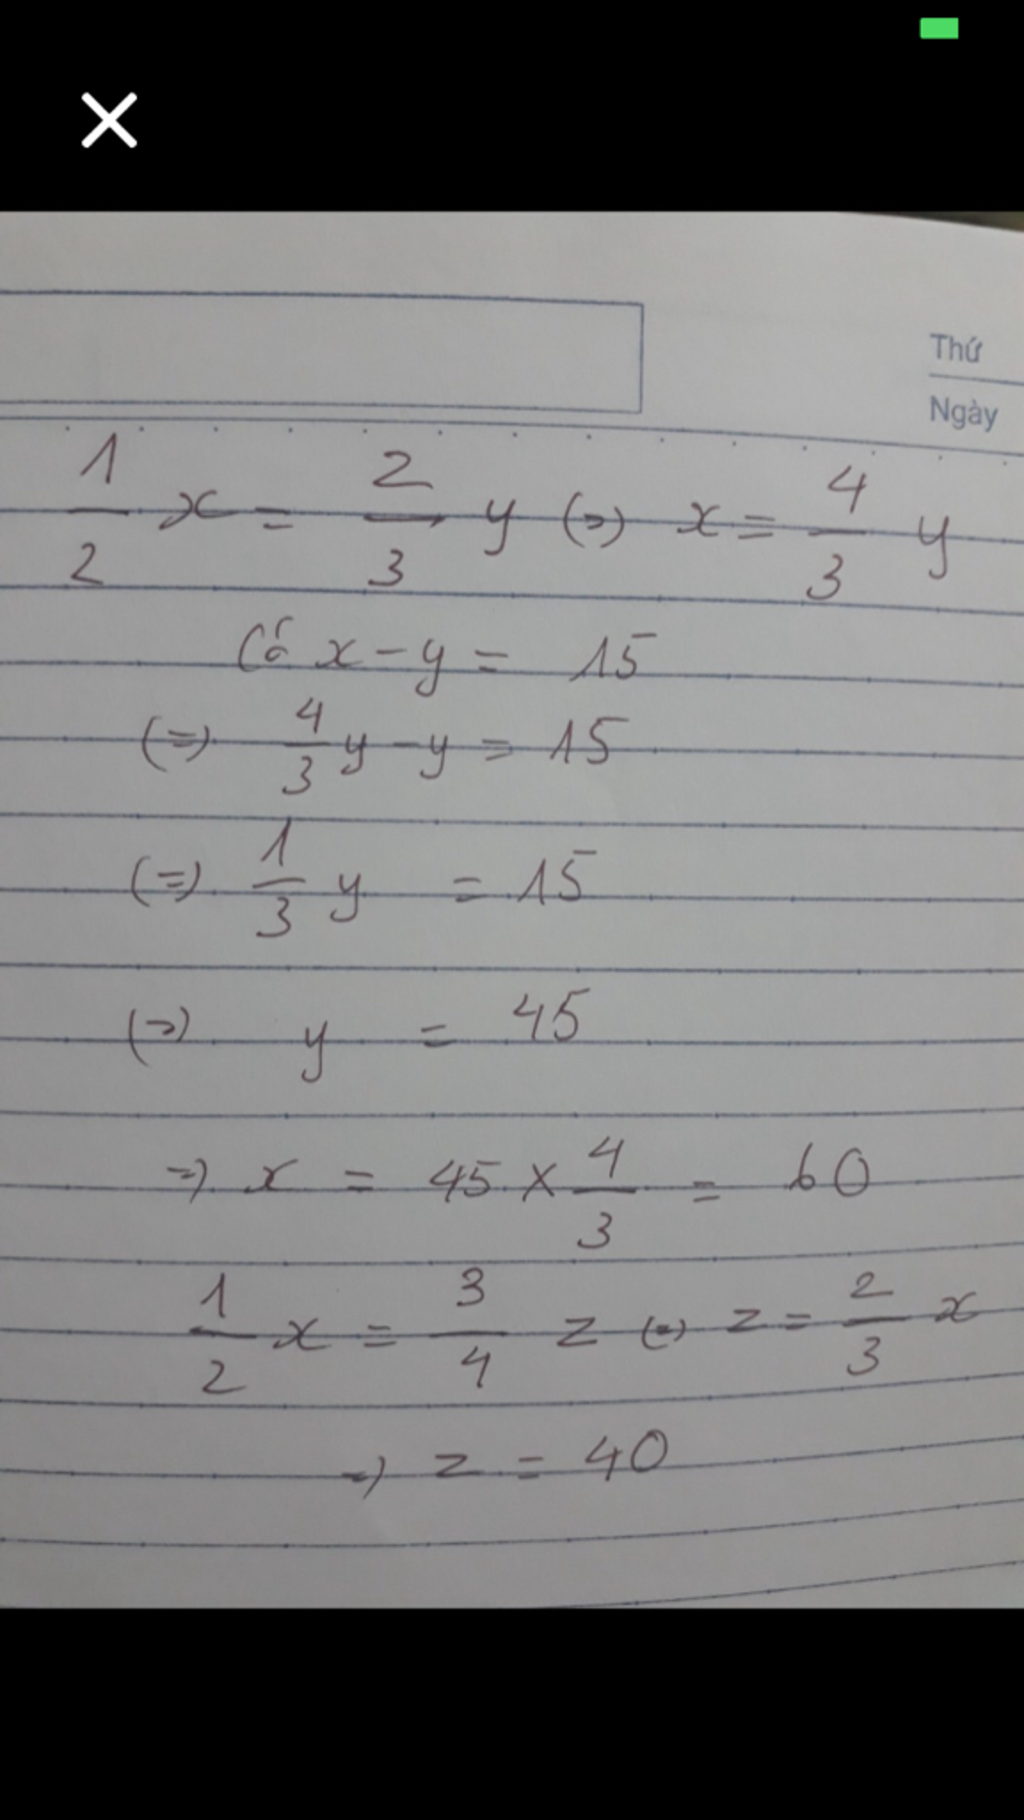 Thứ
Ngày
1/2 x = 2/3 y (=) x = 4/3 y
Có x - y = 15
(=) 4/3 y - y = 15
(=) 1/3 y = 15
(=) y = 45
=) x = 45 × 4/3 = 60
1/2 x = 3/4 z (=) z = 2/3 x
=) z = 40